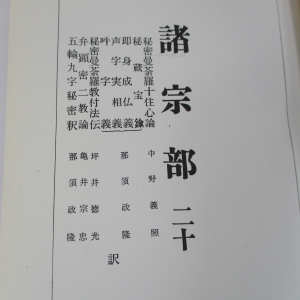 諸宗部 二十
秘密曼荼羅十住心論 中野義照
秘蔵宝鑰
即身成仏義 那須政隆
声字実相義
吽字義
秘密曼荼羅教付法伝 坪井德光
弁顕密二教論 亀井宗忠
五輪九字秘密釈 那須政隆
訳